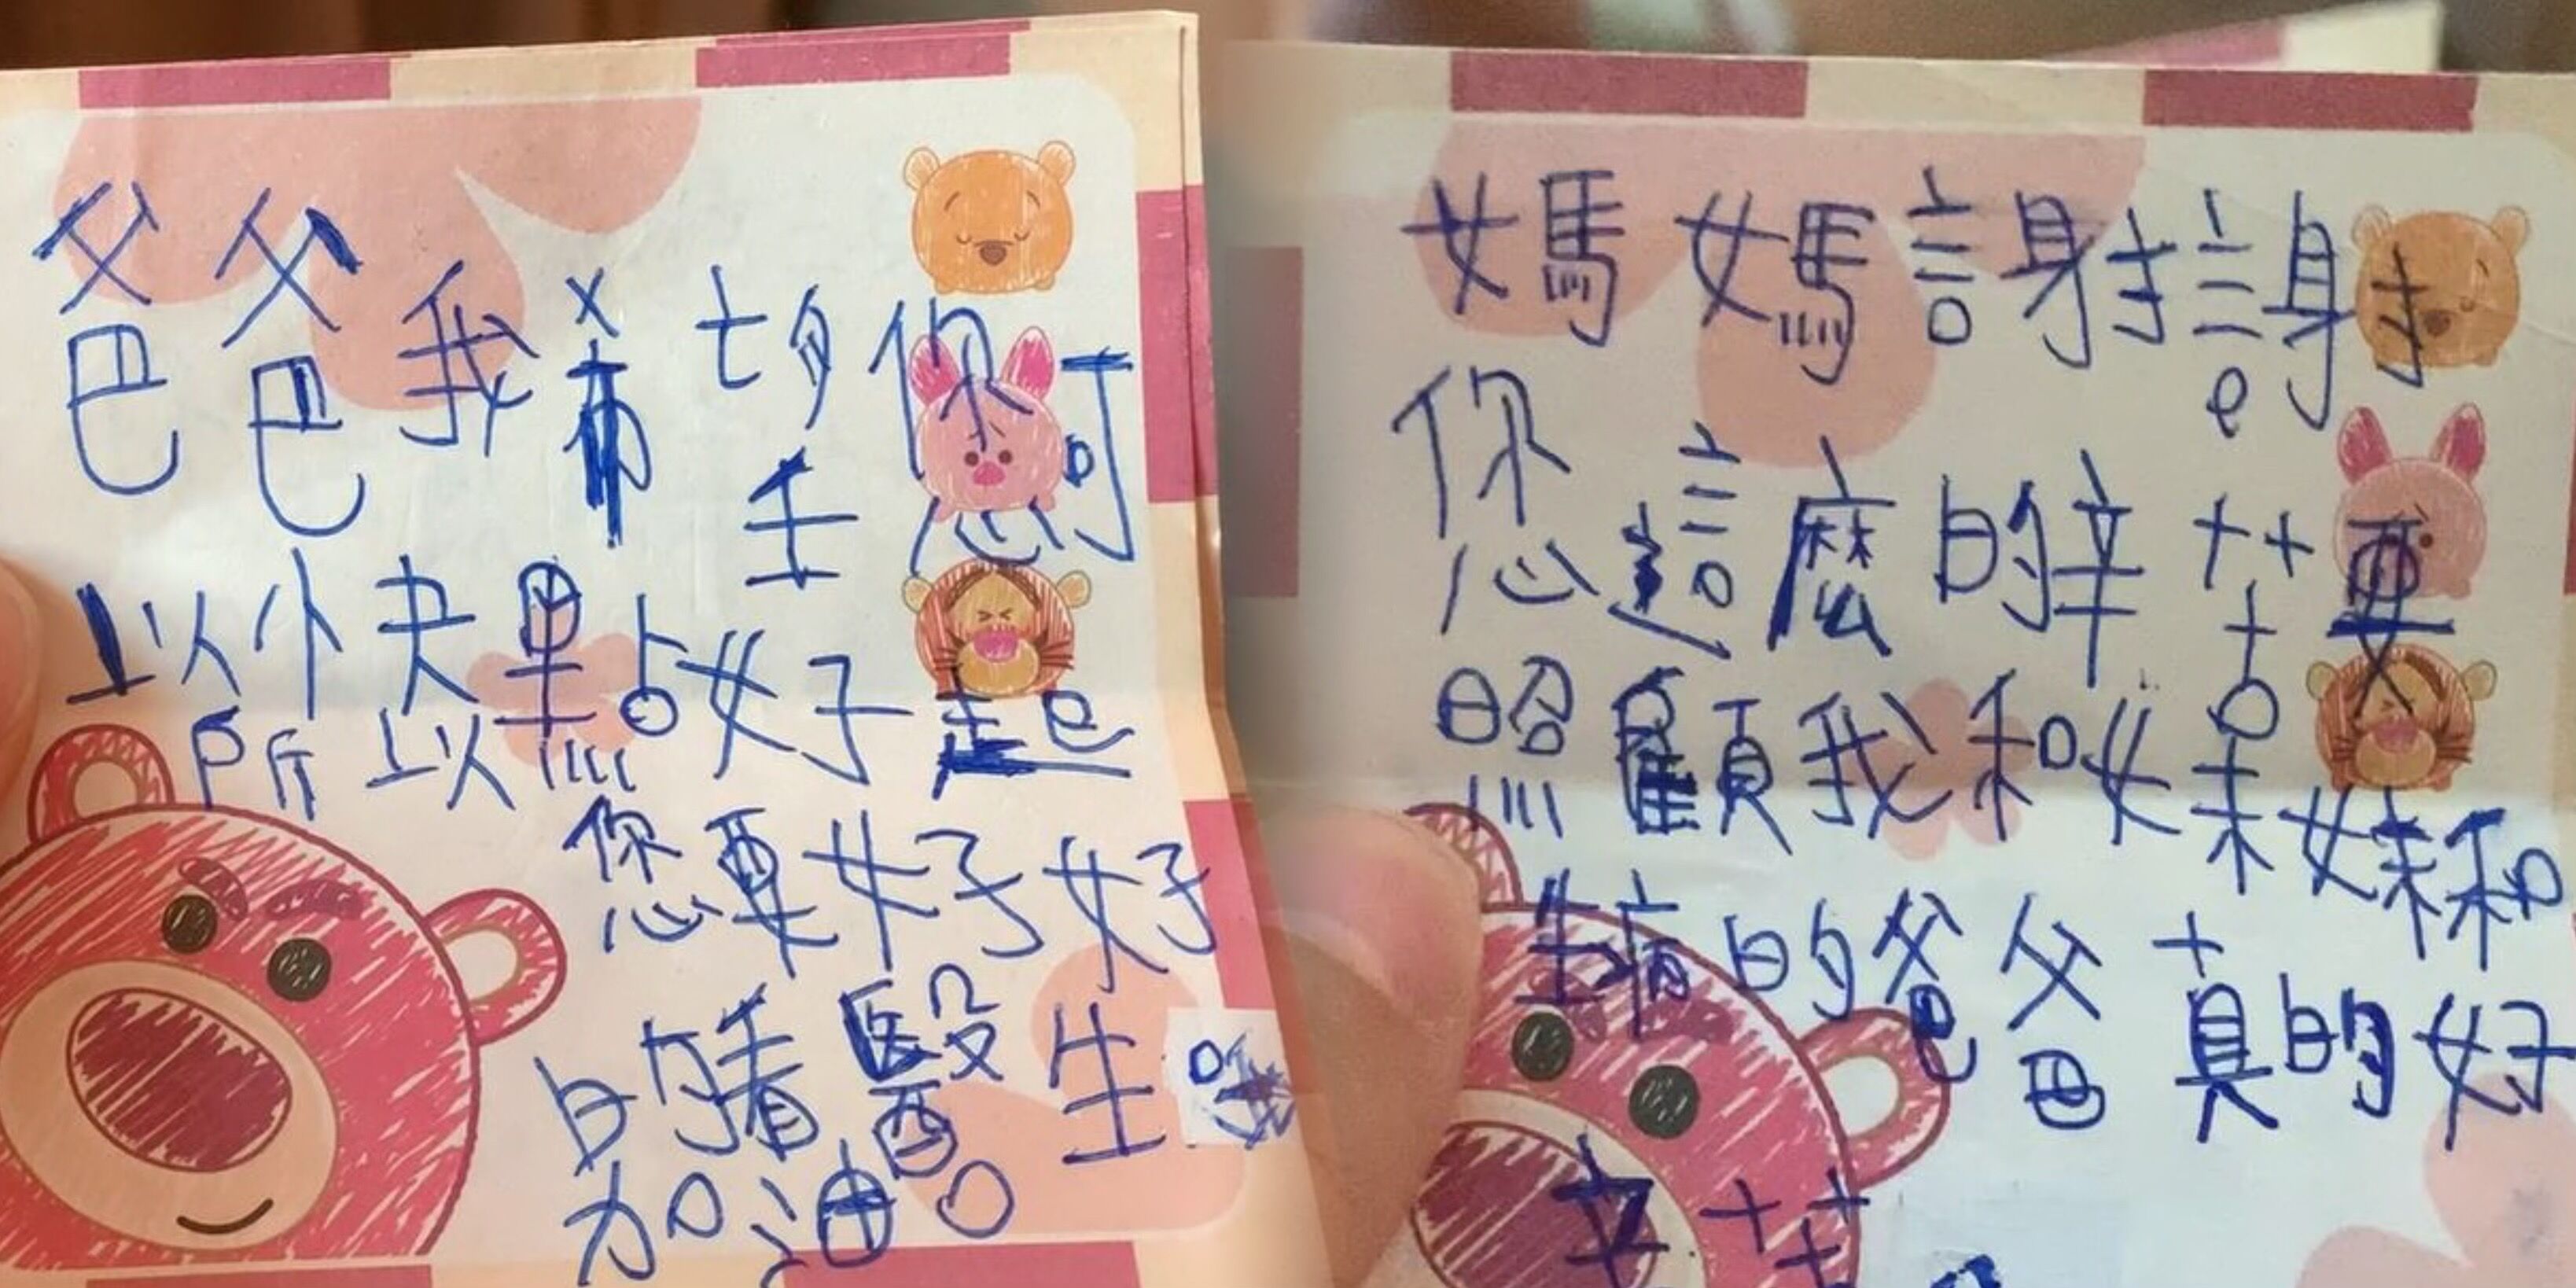 爸爸我希望您可
以快點好起
所以
您要好好
的看醫生
加油。
媽媽謝謝
您這麼的辛苦要
照顧我和妹妹和
生病的爸爸真的好
辛苦